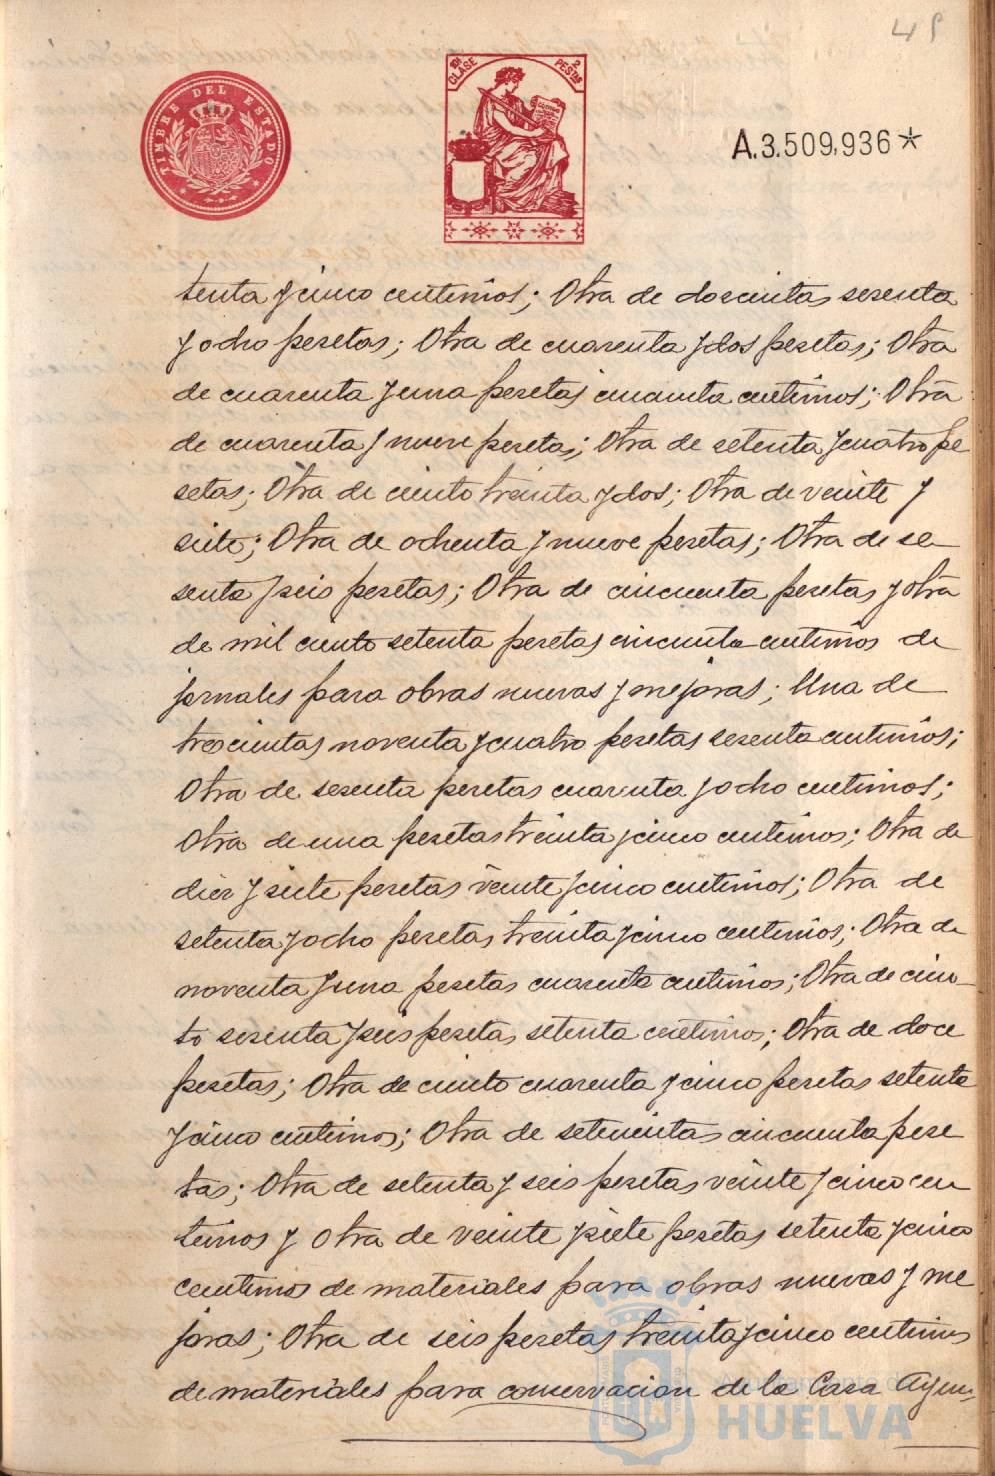 48
TIMBRE DEL ESTADO
8ª CLASE
2 PESTAS
A.3.509,936*
tenta y cinco centimos; Otra de doscientas sesenta
y ocho pesetas; Otra de cuarenta y dos pesetas; Otra
de cuarenta y una pesetas cincuenta centimos; Otra
de cuarenta y nueve pesetas; Otra de setenta y cuatro pe
setas; Otra de ciento treinta y dos; Otra de veinte y
siete; Otra de ochenta y nueve pesetas; Otra de se
senta y seis pesetas; Otra de cincuenta pesetas y otra
de mil ciento setenta pesetas cincuenta centimos de
jornales para obras nuevas y mejoras; Una de
trescientas noventa y cuatro pesetas sesenta centimos;
Otra de sesenta pesetas cuarenta y ocho centimos;
Otra de una pesetas treinta y cinco centimos; Otra de
diez y siete pesetas veinte y cinco centimos; Otra de
setenta y ocho pesetas treinta y cinco centimos; Otra de
noventa y una pesetas cuarenta centimos; Otra de cien-
to sesenta y seis pesetas setenta centimos; Otra de doce
pesetas; Otra de ciento cuarenta y cinco pesetas setenta
y cinco centimos; Otra de setecientas cincuenta pese
tas; Otra de setenta y seis pesetas veinte y cinco cen
timos y otra de veinte y siete pesetas setenta y cinco
centimos de materiales para obras nuevas y me
joras; Otra de seis pesetas treinta y cinco centimos
de materiales para conservacion de la Casa Ayun-
Ayuntamiento de
HUELVA